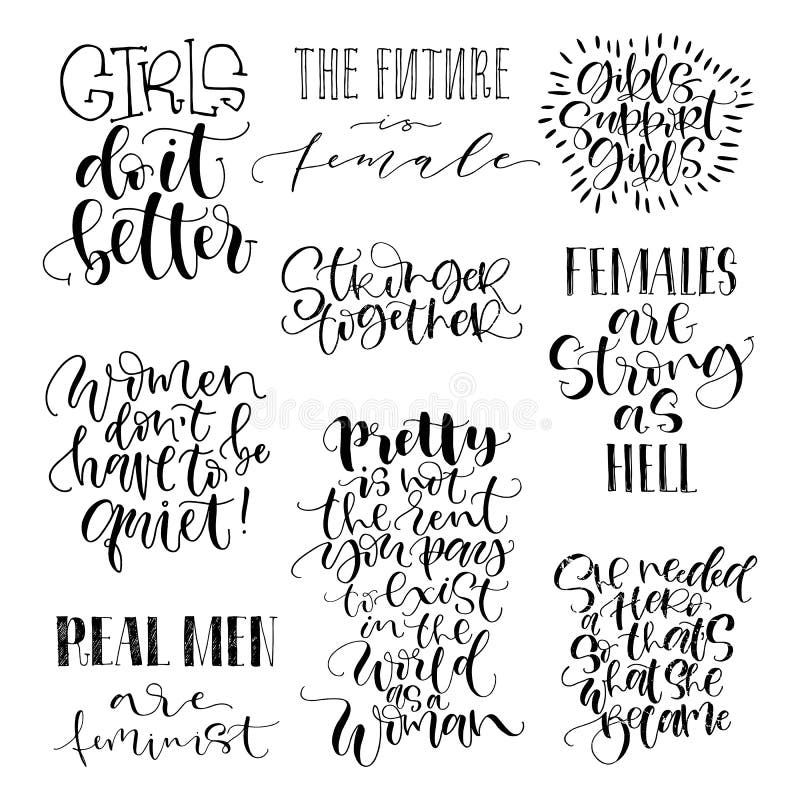 GIRLS
do it
better
THE FUTURE
is
female
girls
support
girls
Stronger
together
FEMALES
are
Strong
as
HELL
Women
don't
have to be
quiet!
pretty
is not
the rent
you pay
to exist
in the
World
as a
Woman
She needed
a Hero
So that's
what she
Became
REAL MEN
are
feminist
dreamstime